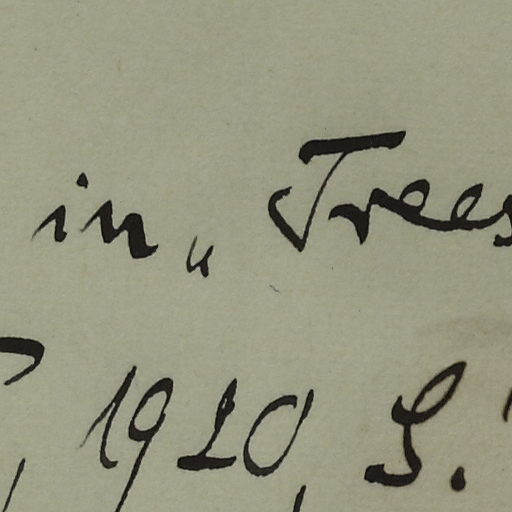 in „Trees
, 1920, S.